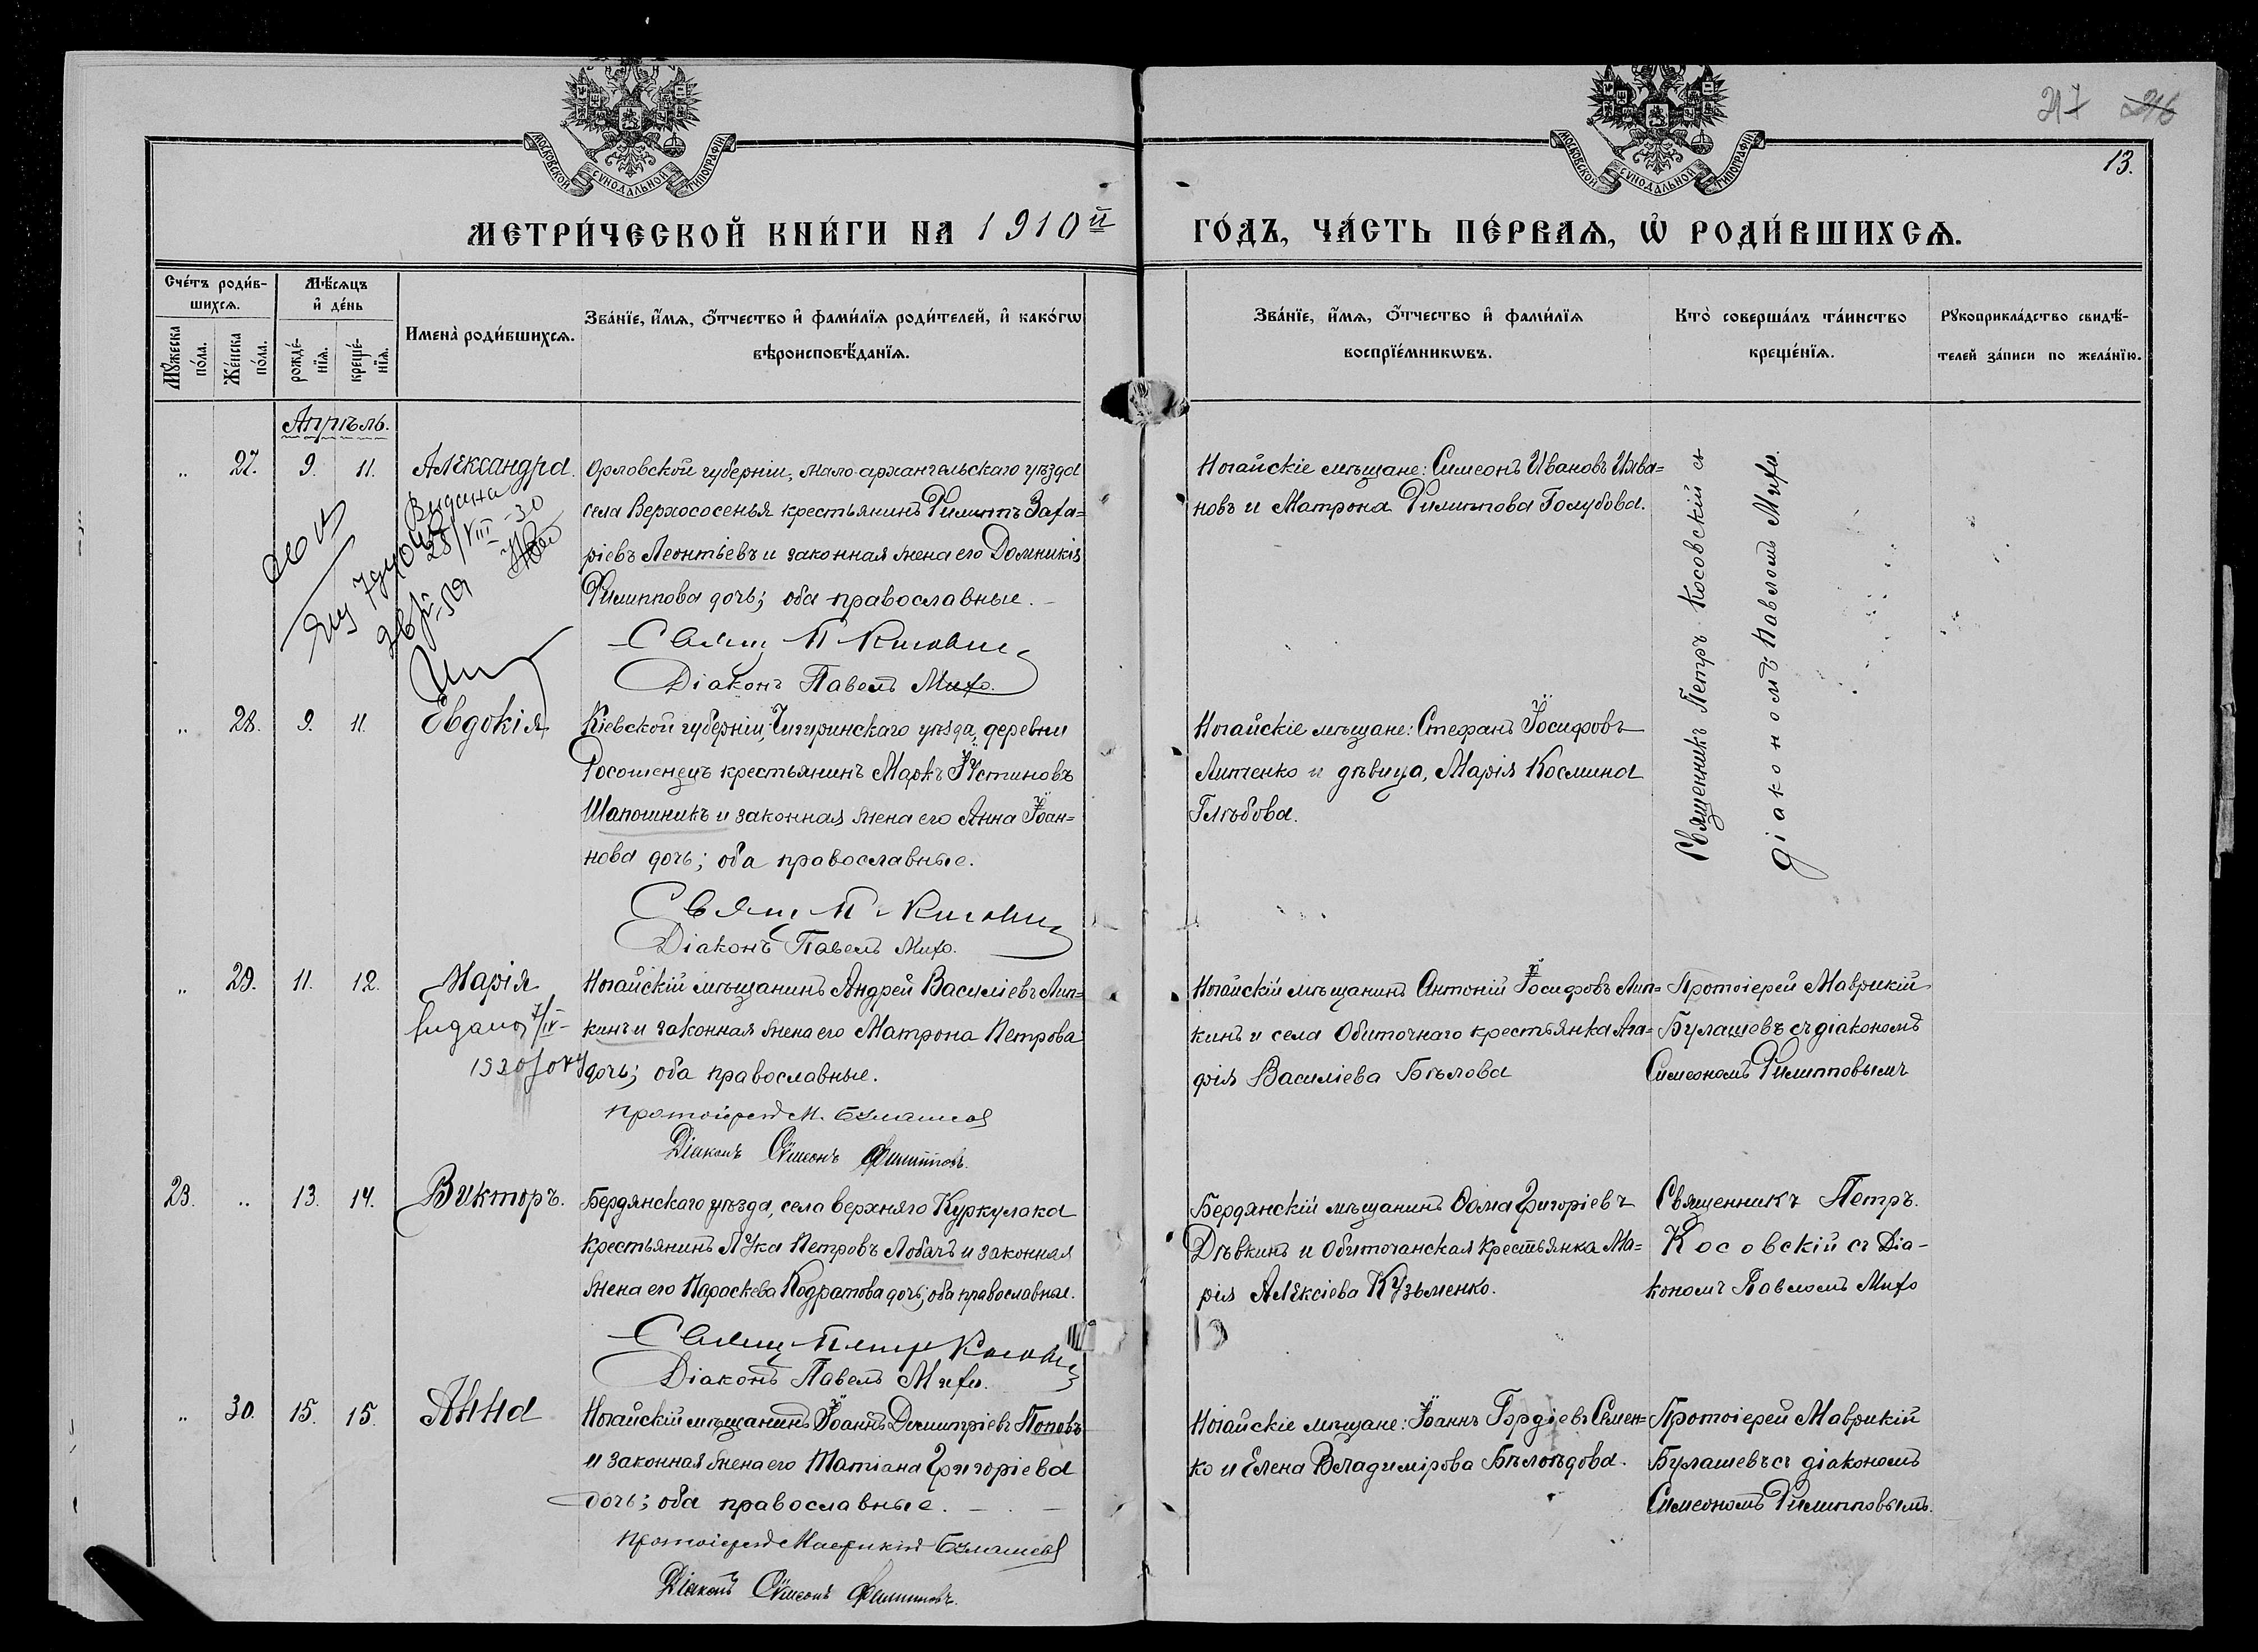 217 216
13.
МОСКОВСКОЙ СѴНОДАЛЬНОЙ ТИПОГРАФІИ
МОСКОВСКОЙ СѴНОДАЛЬНОЙ ТИПОГРАФІИ
МЕТРИ́ЧЕСКОЙ КНИ́ГИ НА 1910й
ГО́ДЪ, ЧА́СТЬ ПЕ́РВАѦ, Ѡ҆ РОДИ́ВШИХСѦ.
Сче́тъ роди́в-
шихсѧ.
Мꙋжеска по́ла.
Же́нска по́ла.
Мѣ́сѧцъ
и҆ де́нь
рожде́-
нїѧ.
креще́-
нїѧ.
Имена̀ роди́вшихсѧ.
Зва́нїе, и҆́мѧ, ѻ҆́тчество и҆ фами́лїѧ роди́телей, и҆ како́гѡ
вѣроисповѣ́данїѧ.
Зва́нїе, и҆́мѧ, ѻ҆́тчество и҆ фами́лїѧ
воспрїе́мникѡвъ.
Кто̀ соверша́лъ та́инство
креще́нїѧ.
Рꙋкоприкла́дство свидѣ́-
телей за́писи по жела́нїю.
Апрѣль.
„ 27. 9. 11. Александра.
Орловской губерніи, Мало-архангельскаго уѣзда
села Верхососенья крестьянинъ Филиппъ Заха=
ріевъ Леонтіевъ и законная жена его Домникія
Филиппова дочь; оба православные.
Свящ. П. Косовскій
Діаконъ Павелъ Михо.
Ногайскіе мѣщане: Симеонъ Ивановъ Ива=
новъ и Матрона Филиппова Голубова.
Священникъ Петръ Косовскій съ
діакономъ Павломъ Михо.
Видана
28/VIII-30
„ 28. 9. 11. Евдокія
Кіевской губерніи, Чигиринскаго уѣзда, деревни
Росошенецъ крестьянинъ Маркъ Іустиновъ
Шапошникъ и законная жена его Анна Іоан=
нова дочь; оба православные.
Свящ. П. Косовскій
Діаконъ Павелъ Михо.
Ногайскіе мѣщане: Стефанъ Іосифовъ
Литенко и дѣвица, Марія Космина
Глѣбова.
„ 29. 11. 12. Марія
Ногайскій мѣщанинъ Андрей Василіевъ Лип=
кинъ и законная жена его Матрона Петрова
дочь; оба православные.
Протоіерей М. Булашевъ
Діаконъ Сѵмеонъ Филипповъ.
видано 7/IV-
1930 року
Ногайскій мѣщанинъ Антоній Іосифовъ Лип=
кинъ и села Обиточнаго крестьянка Ага=
фія Василіева Бѣлова
Протоіерей Маврикій
Булашевъ съ діакономъ
Симеономъ Филипповымъ
23. „ 13. 14. Викторъ.
Бердянскаго уѣзда, села верхняго Куркулака
крестьянинъ Лука Петровъ Лобачъ и законная
жена его Параскева Кодратова дочь; оба православные.
Свящ. Петръ Косовскій
Діаконъ Павелъ Михо.
Бердянскій мѣщанинъ Ѳома Григоріевъ
Дѣвкинъ и Обиточанская крестьянка Ма=
рія Алексіева Кузьменко.
Священникъ Петръ.
Косовскій съ Діа-
кономъ Павломъ Михо
„ 30. 15. 15. Анна
Ногайскій мѣщанинъ Іоаннъ Димитріевъ Поповъ
и законная жена его Татіана Григоріева
дочь; оба православные.
Протоіерей Маврикій Булашевъ
Діаконъ Сѵмеонъ Филипповъ.
Ногайскіе мѣщане: Іоаннъ Гордіевъ Семен=
ко и Елена Владимірова Бѣлоѣдова.
Протоіерей Маврикій
Булашевъ съ діакономъ
Симеономъ Филипповымъ.